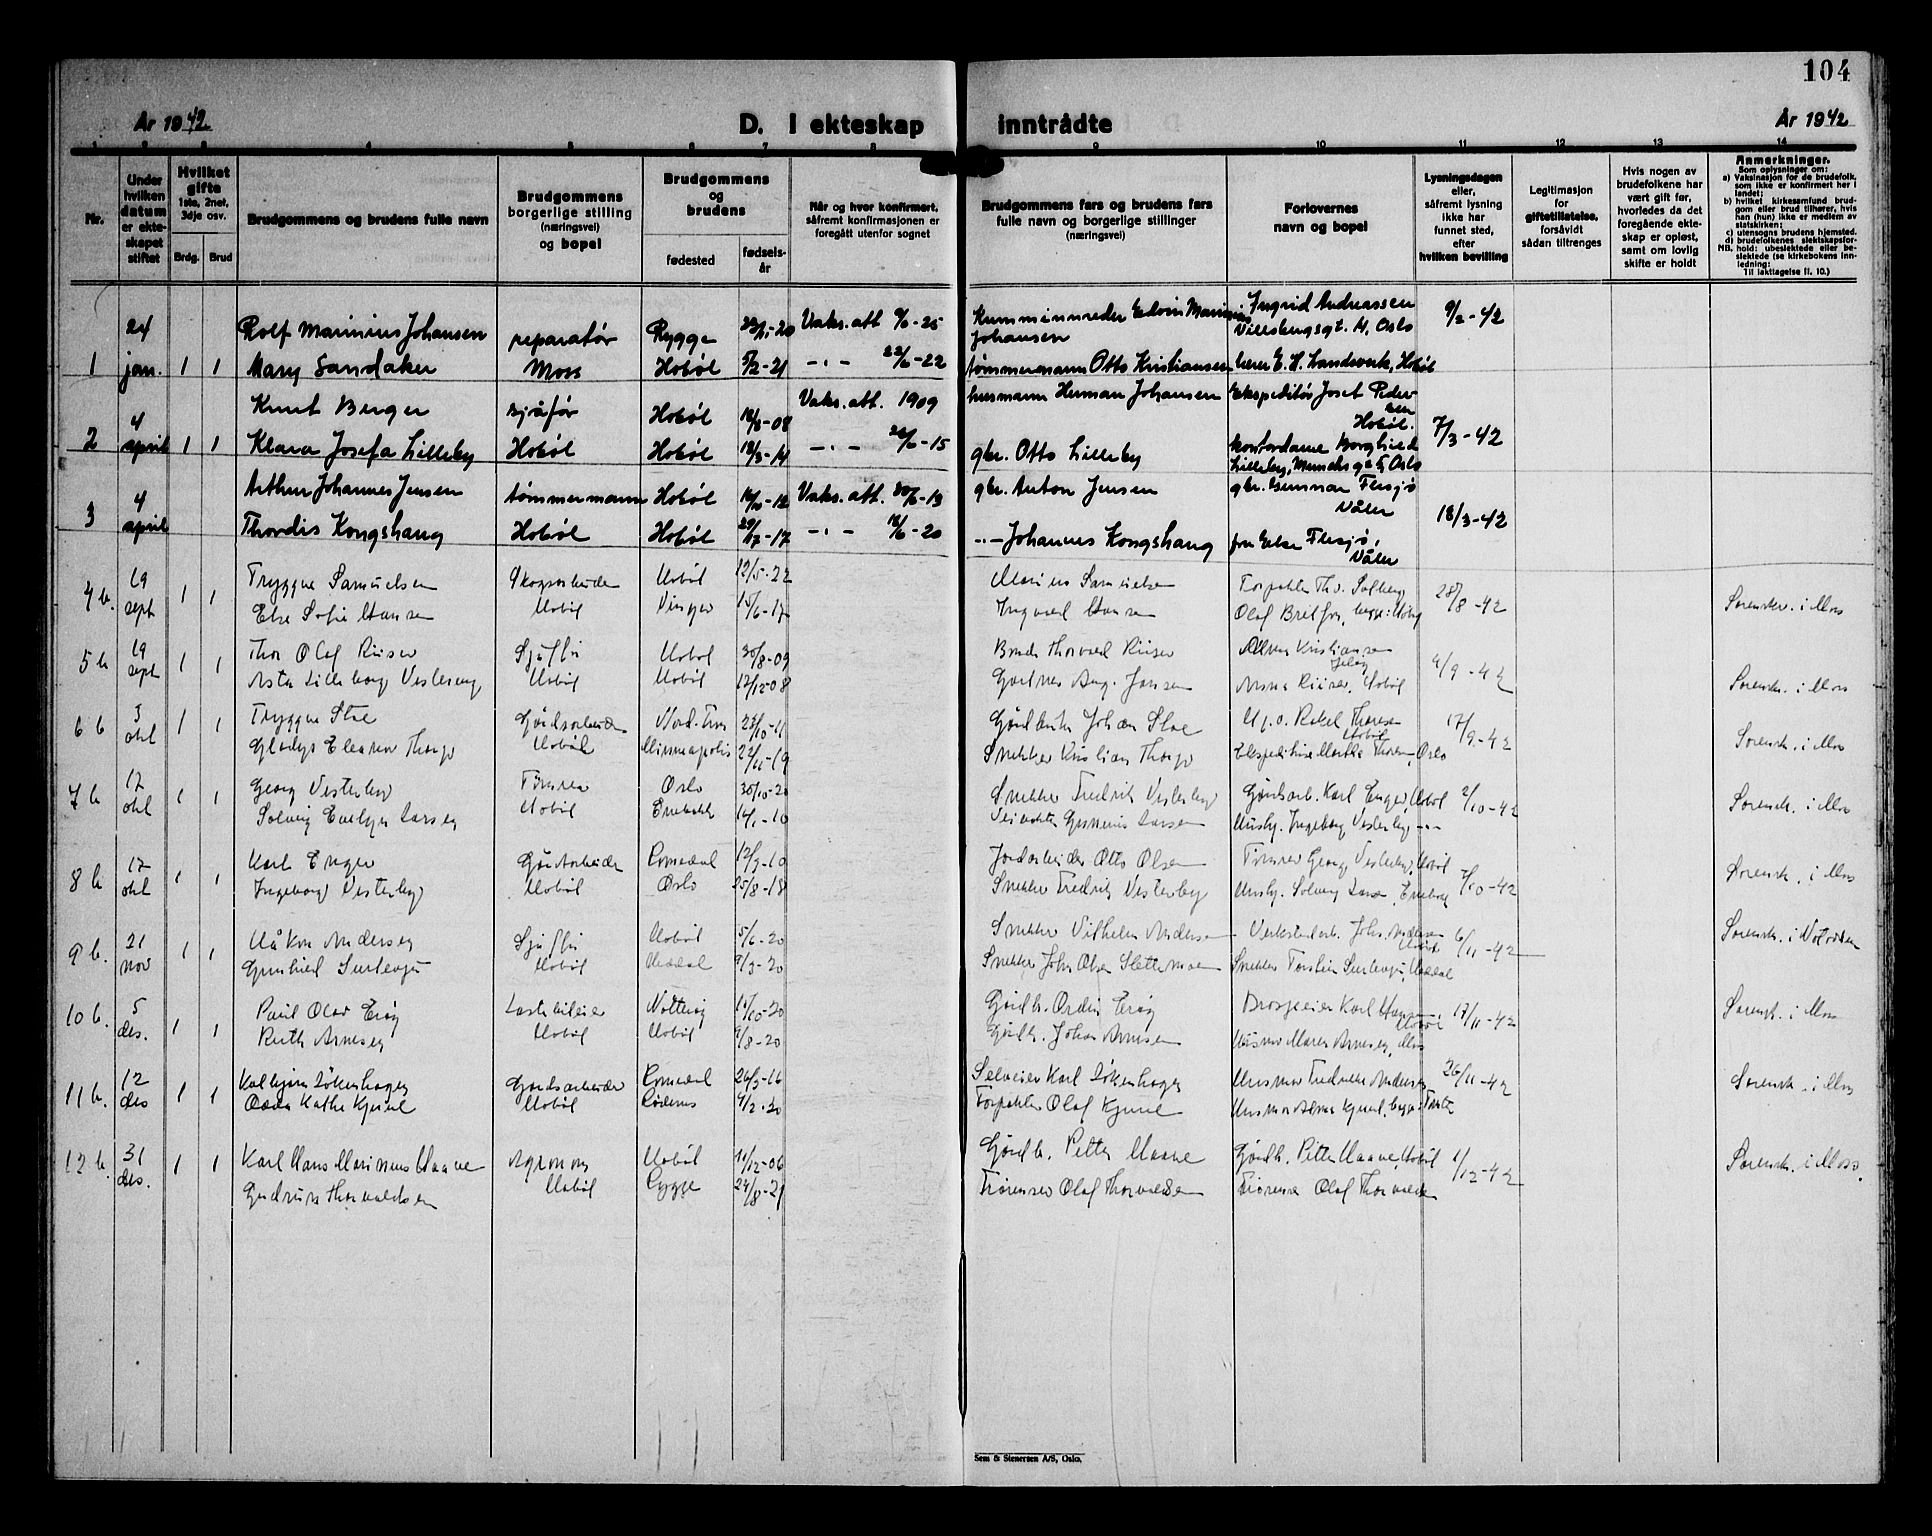 104
År 1942
D. I ekteskap inntrådte
År 1942
1 2 3 4 5 6 7 8 9 10 11 12 13 14
Nr.
Under hvilken datum er ekteskapet stiftet
Hvilket gifte 1ste, 2net, 3dje osv.
Brdg. Brud
Brudgommens og brudens fulle navn
Brudgommens borgerlige stilling (næringsvei) og bopel
Brudgommens og brudens
fødested
fødselsår
Når og hvor konfirmert, såfremt konfirmasjonen er foregått utenfor sognet
Brudgommens fars og brudens fars fulle navn og borgerlige stillinger (næringsvei)
Forlovernes navn og bopel
Lysningsdagen eller, såfremt lysning ikke har funnet sted, efter hvilken bevilling
Legitimasjon for giftetillatelse, forsåvidt sådan tiltrenges
Hvis nogen av brudefolkene har vært gift før, hvorledes da det foregående ekteskap er opløst, samt om lovlig skifte er holdt
Anmerkninger.
Som oplysninger om:
a) Vaksinasjon for de brudefolk, som ikke er konfirmert her i landet;
b) hvilket kirkesamfund brudgom eller brud tilhører, hvis han (hun) ikke er medlem av statskirken;
c) utensogns brudens hjemsted.
d) brudefolkenes slektskapsforhold: ubeslektede eller beslektede (se kirkebokens innledning:
Til iakttagelse fl. 10.)
24 Rolf Marinius Johansen reparatør Rygge Vaks.att. Edvin Ingrid Andreassen 9/2-42
Oslo
Johansen
1 jan. 1 1 Mary Sandaker Moss Hobøl 5/2-21 -"- 22/6-22 tømmermann Otto Kristiansen lærer E. H. Landsverk, Hobøl
4 Knut Berger sjåfør Hobøl Vaks.att. 1909 husmann Herman Johansen Ekspeditør Josef Pedersen
Hobøl. 7/3-42
2 april 1 1 Klara Josefa Lilleby Hobøl Hobøl 18/3-14 -"- gbr. Otto Lilleby kontordame Borghild
Lilleby, Oslo
4 Arthur Johannes Jensen tømmermann Hobøl Vaks.att. gbr. Anton Jensen gbr. Gunnar Flesjø
Våler 18/3-42
3 april Thordis Kongshaug Hobøl Hobøl -"- 18/6-20 -"- Johannes Kongshaug fru Else Flesjø,
Våler
4 b. 19 Tryggve Samuelsen Skogsarbeider Hobøl 12/5-22 Marius Samuelsen Forpakter Th. Solberg 28/8-42
sept 1 1 Else Sofie Hansen Hobøl Vinger 15/6-17 Ingvard Hansen Olaf Sorenskr. i Moss
5 b 19 Thor Olaf Riiser Sjåfør Hobøl 30/8-09 Thorvald Riiser Kristiansen
sept 1 1 Vesterøy Hobøl Hobøl 12/12-08 Gartner Aug. Jansen Anna Riiser, Hobøl 4/9-42 Sorensk. i Moss
6 b 3 Tryggve Stoe Gårdsarbeider 23/10-11 Gårdbruker Johan Stoe Rakel Thoresen 17/9-42
okt 1 1 Gladys Eleanor Hobøl Minneapolis 22/11-19 Snekker Kristian Oslo Sorensk. i Moss
7 b 17 Georg Vesterby Tømrer Oslo 30/10-20 Snekker Fredrik Vesterby Gårdsarb. Karl Enger, Hobøl 2/10-42
okt 1 1 Solveig Evelyn Larsen Hobøl Enebakk 14/1-10 Larsen Husby. Ingeborg Vesterby -"- Sorensk. i Moss
8 b 17 Karl Enger Gårdsarbeider Romedal 12/3-10 Jordarbeider Otto Olsen Tømrer Georg Vesterby, Hobøl
okt 1 1 Ingeborg Vesterby Hobøl Oslo 25/8-18 Snekker Fredrik Vesterby Solveig Larsen, Enebakk 2/10-42 Sorensk. i Moss
9 b. 21 Håkon Andersen Sjåfør Hobøl 5/6-20 Snekker Vilhelm Andersen Verkstedarb. Johs. Andersen 6/11-42 Sorensk. i Notodden
nov 1 1 Gunhild Hobøl 9/3-20 Snekker John Olsen Slettemoen Snekker Torstein
10 b. 5 Paul Olav Erøy Lastebileier Nøtterøy 10/10-20 Gårdb. Erøy Drosjeeier Karl 17/11-42 Sorensk. i Moss
des. 1 1 Ruth Arnesen Hobøl Hobøl 9/8-20 Gårdb. Johan Arnesen Husmor Maren Arnesen, Moss
11 b. 12 Kolbjørn Løkenhagen Gårdsarbeider Romedal 26/3-16 Selveier Karl Løkenhagen Husmor Fredrikke Andersen 26/11-42 Sorensk. i Moss
des 1 1 Kathe Hobøl Rødenes 4/2-20 Forpakter Olaf Husmor
12 b. 31 Karl Hans Marinius Haave Agronom Hobøl 11/12-06 Gårdb. Petter Haave Gårdb. Petter Haave, Hobøl 1/12-42 Sorensk. i Moss
des. 1 1 Gudrun Thorvaldsen Hobøl Rygge 24/8-21 Olaf Thorvaldsen Olaf Thorvaldsen
Sem & Stenersen A/S, Oslo.